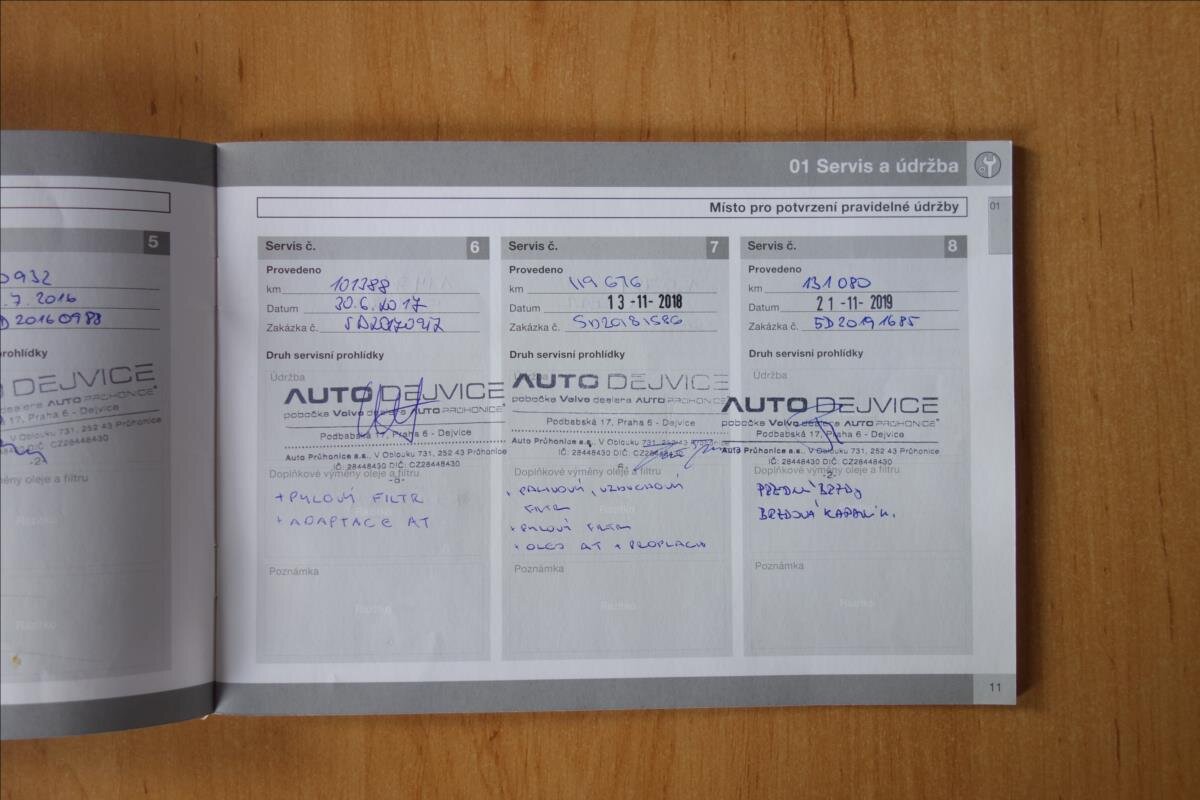 5
0932
.7.2016
D20160983
rohlídky
O DEJVICE
dealera AUTO PRŮHONICE
17, Praha 6 - Dejvice
V Oblouku 731, 252 43 Průhonice
CZ28448430
-2-
ěny oleje a filtru
Razítko
Razítko
01 Servis a údržba
01
Místo pro potvrzení pravidelné údržby
Servis č. 6
Provedeno
km 101388
Datum 30.6.2017
Zakázka č. SD20170917
Druh servisní prohlídky
Údržba
AUTO DEJVICE
pobočka Volvo dealera AUTO PRŮHONICE
Podbabská 17, Praha 6 - Dejvice
Auto Průhonice a.s., V Oblouku 731, 252 43 Průhonice
IČ: 28448430 DIČ: CZ28448430
Doplňkové výměny oleje a filtru
+ PYLOVÝ FILTR
+ ADAPTACE AT
Razítko
Poznámka
Razítko
Servis č. 7
Provedeno
km 119676
Datum 13 -11- 2018
Zakázka č. SD20181586
Druh servisní prohlídky
Údržba
AUTO DEJVICE
pobočka Volvo dealera AUTO PRŮHONICE
Podbabská 17, Praha 6 - Dejvice
Auto Průhonice a.s., V Oblouku 731, 252 43 Průhonice
IČ: 28448430 DIČ: CZ28448430
Doplňkové výměny oleje a filtru
+ PALIVOVÝ, VZDUCHOVÝ
FILTR
+ PYLOVÝ FILTR
+ OLEJ AT + PROPLACH
Razítko
Poznámka
Razítko
Servis č. 8
Provedeno
km 131080
Datum 21 -11- 2019
Zakázka č. SD20191685
Druh servisní prohlídky
Údržba
AUTO DEJVICE
pobočka Volvo dealera AUTO PRŮHONICE
Podbabská 17, Praha 6 - Dejvice
Auto Průhonice a.s., V Oblouku 731, 252 43 Průhonice
IČ: 28448430 DIČ: CZ28448430
-2-
Doplňkové výměny oleje a filtru
PŘEDNÍ BRZDY
BRZDOVÁ KAPALIN.
Poznámka
Razítko
11